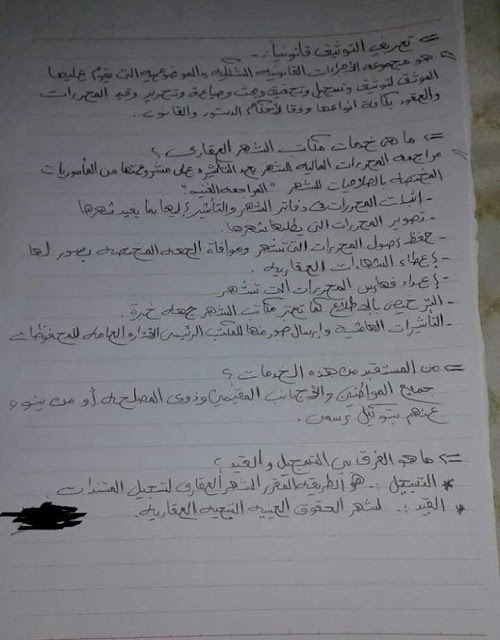 = تعريف التوثيق قانونياً :-
هو مجموعة الإجراءات القانونية الشكلية والموضوعية التى يقوم عليها
الموثق لتوثيق وتسجيل وتحقيق وبحث وصياغة وتحرير وقيد المحررات
والعقود بكافة انواعها وفقا لأحكام الدستور والقانون .
= ما هى خدمات مكاتب الشهر العقارى ؟
مراجعه المحررات الماليه للشهر بعد التأشيره على مشروعيتها من المأموريات
المختصة بالصلاحيات للشهر "المراجعه الفنيه"
- إثبات المحررات فى دفاتر الشهر والتأشير إليها بما يفيد شهرها
- تصوير المحررات التى يطلب شهرها .
- حفظ أصول المحررات التى تشهر وموافاة الجهه المختصه بصور لها
- إعطاء الشهادات العقاريه .
- إعداد فهارس المحررات التى تشهر .
- الترخيص بالاطلاع كما تعتبر مكاتب الشهر جهه خبرة .
- التأشيرات الهامشية وإرسال صور منها للمكتب الرئيسى الادارة العامه للمحفوظات
= من المستفيد من هذه الخدمات ؟
جميع المواطنين والأجانب المقيمين وذوى المصلحه أو من ينوب
عنهم بتوكيل رسمى .
= ما هو الفرق بين التسجيل والقيد ؟
* التسجيل :- هو الطريقه المقرر للشهر العقارى لتسجيل المستندات .
* القيد :- لشهر الحقوق العينيه التبعيه العقاريه .